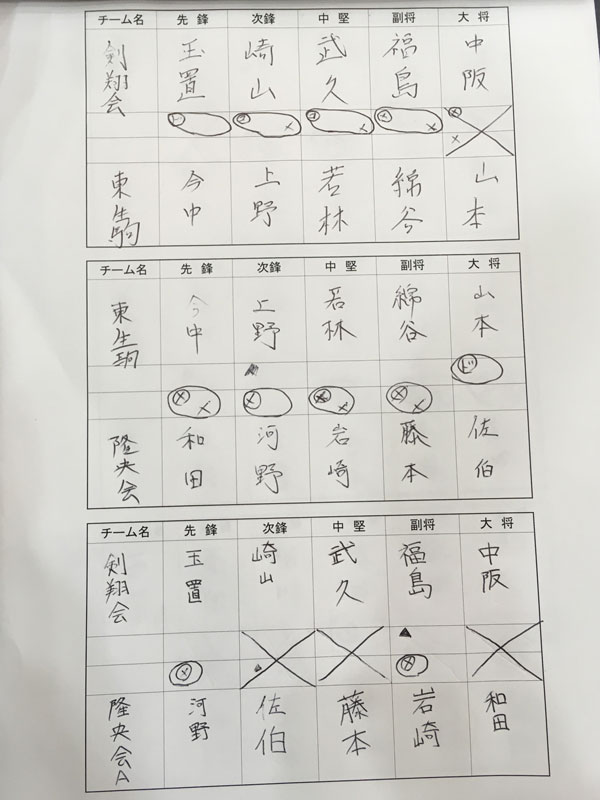 チーム名 先鋒 次鋒 中堅 副将 大将
剣翔会 玉置 崎山 武久 福島 中阪
東生駒 今中 上野 若林 綿谷 山本
チーム名 先鋒 次鋒 中堅 副将 大将
東生駒 今中 上野 若林 綿谷 山本
隆央会 和田 河野 岩崎 藤本 佐伯
チーム名 先鋒 次鋒 中堅 副将 大将
剣翔会 玉置 崎山 武久 福島 中阪
隆央会A 河野 佐伯 藤本 岩崎 和田